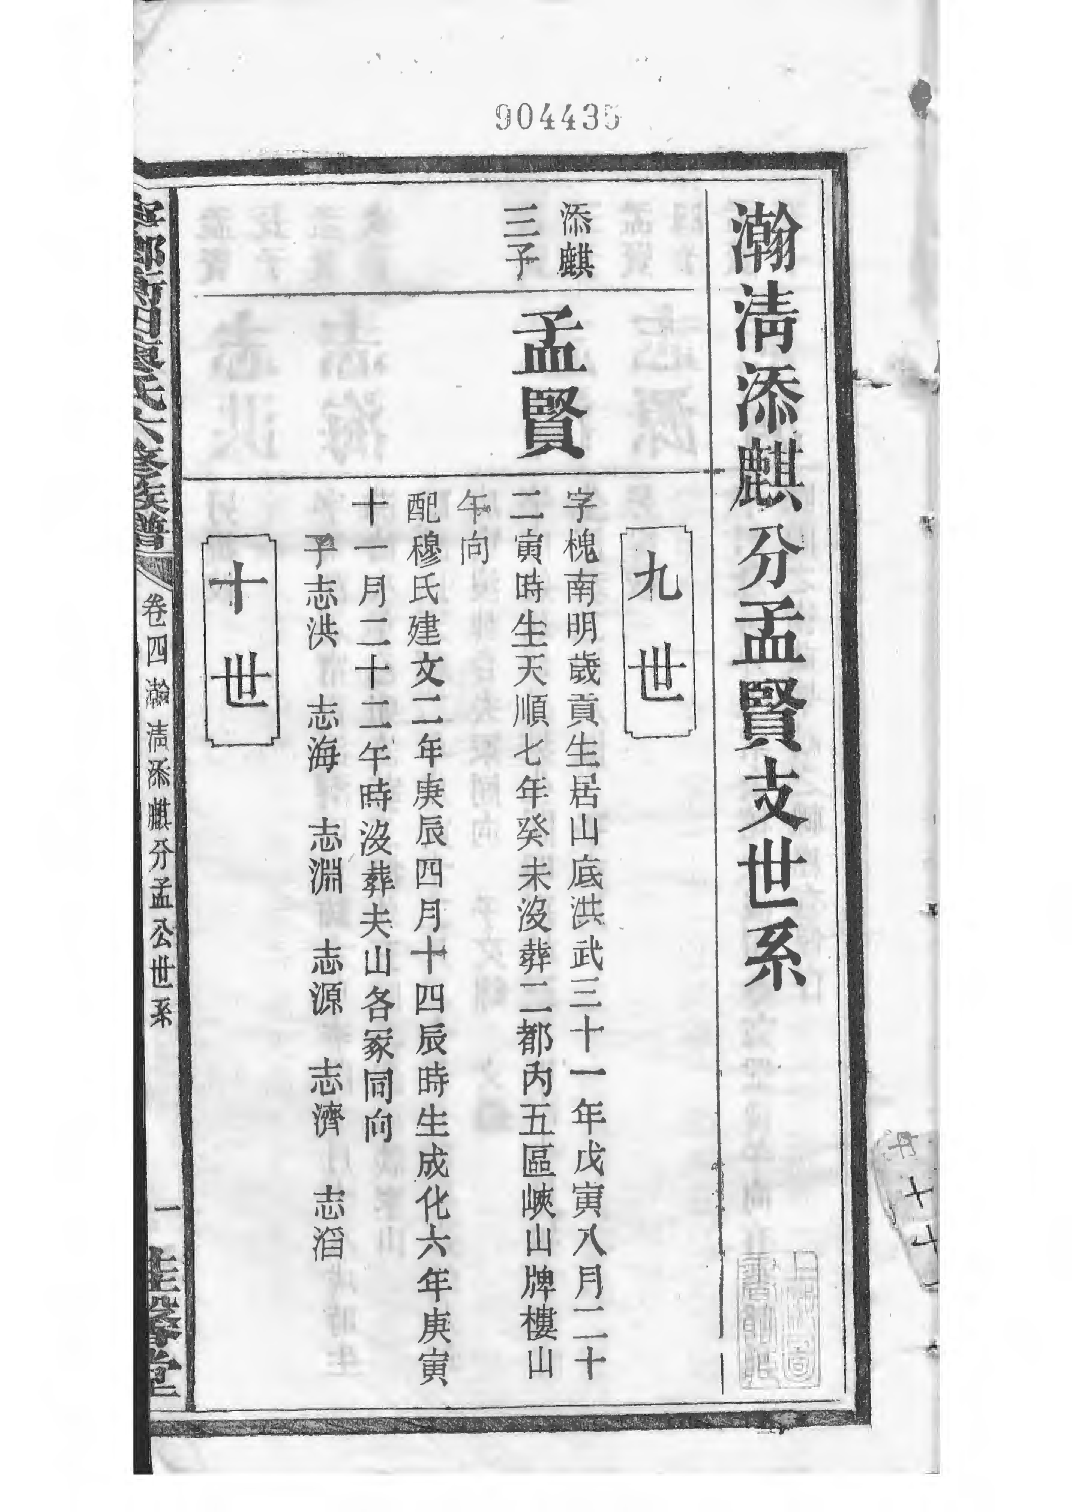 904435
瀚清添麒分孟賢支世系
九世
添麒
三子
孟賢
字槐南明歲貢生居山底洪武三十一年戊寅八月二十
二寅時生天順七年癸未沒葬二都內五區峽山牌樓山
午向
配穆氏建文二年庚辰四月十四辰時生成化六年庚寅
十一月二十二午時沒葬夫山各冢同向
子志洪 志海 志淵 志源 志濟 志滔
十世
寧鄉衡田廖氏六修族譜
卷四瀚清添麒分孟公世系
一